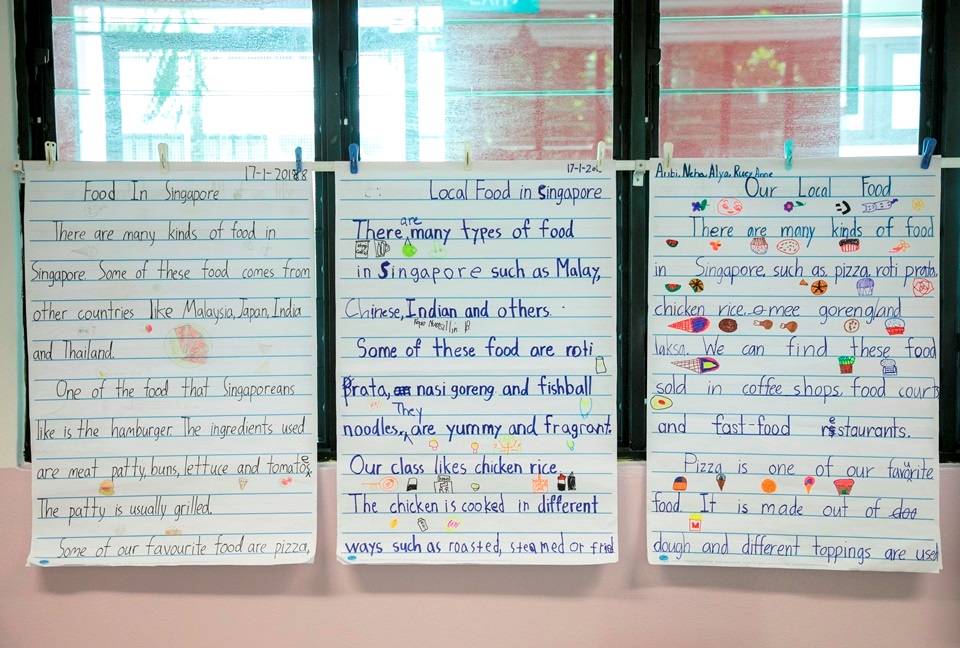 17-1-2018
Food In Singapore
There are many kinds of food in
Singapore. Some of these food comes from
other countries like Malaysia, Japan, India
and Thailand.
One of the food that Singaporeans
like is the hamburger. The ingredients used
are meat patty, buns, lettuce and tomatoe.
The patty is usually grilled.
Some of our favourite food are pizza,
17-1-20
Local Food in Singapore
are
There many types of food
in Singapore such as Malay,
Chinese, Indian and others.
Some of these food are roti
Prata, nasi goreng and fishball
They
noodles. are yummy and fragrant.
Our class likes chicken rice.
The chicken is cooked in different
ways such as roasted, steamed or fried
Aribi, Neha, Alya, Anne
Our Local Food
There are many kinds of food
in Singapore, such as, pizza, roti prata,
chicken rice, mee goreng and
laksa. We can find these food
sold in coffee shops, food courts
and fast-food restaurants.
Pizza is one of our favourite
food. It is made out of doo
dough and different toppings are used